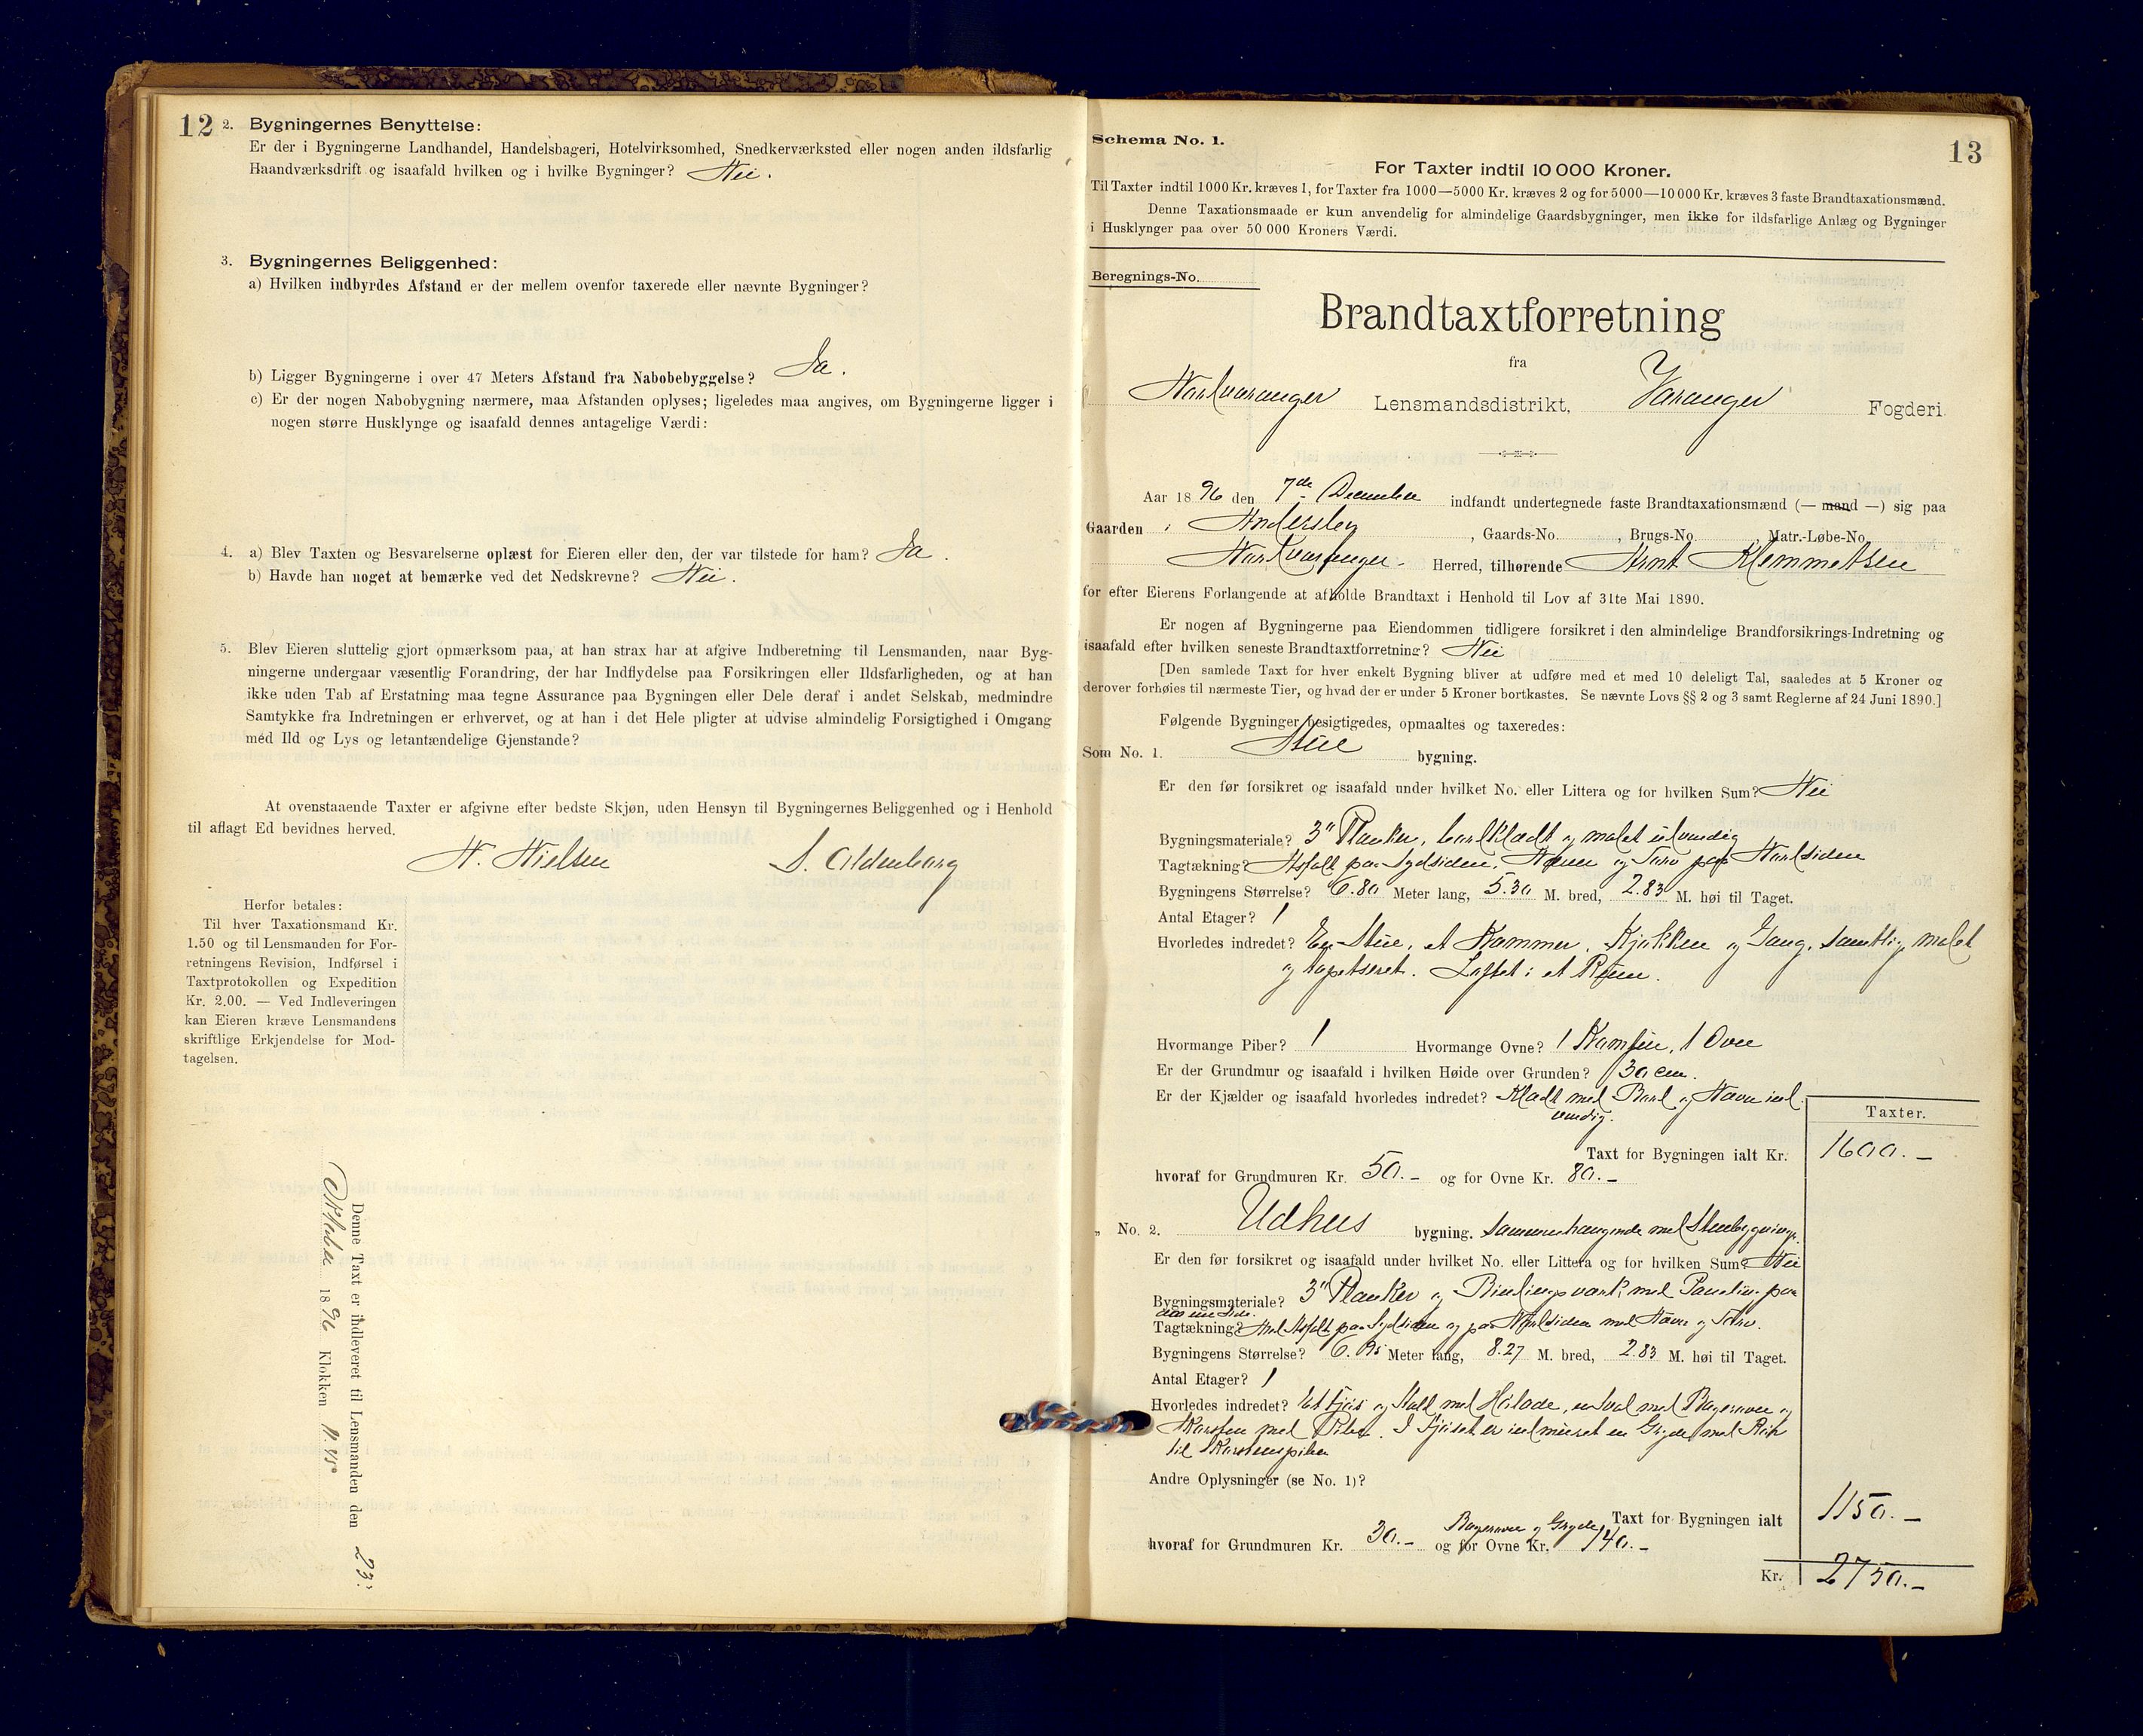 12
2. Bygningernes Benyttelse:
Er der i Bygningerne Landhandel, Handelsbageri, Hotelvirksomhed, Snedkerværksted eller nogen anden ildsfarlig
Haandværksdrift og isaafald hvilken og i hvilke Bygninger? Nei.
3. Bygningernes Beliggenhed:
a) Hvilken indbyrdes Afstand er der mellem ovenfor taxerede eller nævnte Bygninger?
b) Ligger Bygningerne i over 47 Meters Afstand fra Nabobebyggelse? Ja.
c) Er der nogen Nabobygning nærmere, maa Afstanden oplyses; ligeledes maa angives, om Bygningerne ligger i
nogen større Husklynge og isaafald dennes antagelige Værdi:
4. a) Blev Taxten og Besvarelserne oplæst for Eieren eller den, der var tilstede for ham? Ja.
b) Havde han noget at bemærke ved det Nedskrevne? Nei.
5. Blev Eieren sluttelig gjort opmærksom paa, at han strax har at afgive Indberetning til Lensmanden, naar Byg-
ningerne undergaar væsentlig Forandring, der har Indflydelse paa Forsikringen eller Ildsfarligheden, og at han
ikke uden Tab af Erstatning maa tegne Assurance paa Bygningen eller Dele deraf i andet Selskab, medmindre
Samtykke fra Indretningen er erhvervet, og at han i det Hele pligter at udvise almindelig Forsigtighed i Omgang
med Ild og Lys og letantændelige Gjenstande?
At ovenstaaende Taxter er afgivne efter bedste Skjøn, uden Hensyn til Bygningernes Beliggenhed og i Henhold
til aflagt Ed bevidnes herved.
N. Nielsen S. Aldenborg
Herfor betales:
Til hver Taxationsmand Kr.
1.50 og til Lensmanden for For-
retningens Revision, Indførsel i
Taxtprotokollen og Expedition
Kr. 2.00. — Ved Indleveringen
kan Eieren kræve Lensmandens
skriftlige Erkjendelse for Mod-
tagelsen.
Denne Taxt er indleveret til Lensmanden den 23:
1896 Klokken 11.45
13
Schema No. 1.
For Taxter indtil 10 000 Kroner.
Til Taxter indtil 1000 Kr. kræves 1, for Taxter fra 1000—5000 Kr. kræves 2 og for 5000—10 000 Kr. kræves 3 faste Brandtaxationsmænd.
Denne Taxationsmaade er kun anvendelig for almindelige Gaardsbygninger, men ikke for ildsfarlige Anlæg og Bygninger
i Husklynger paa over 50 000 Kroners Værdi.
Beregnings-No.
Brandtaxtforretning
fra
Nordvaranger Lensmandsdistrikt, Varanger Fogderi
Aar 1896 den 7de December indfandt undertegnede faste Brandtaxationsmænd (— mand —) sig paa
Gaarden i Andersby, Gaards-No. , Brugs-No. , Matr.-Løbe-No.
Nordvaranger Herred, tilhørende Arnt Klemmetsen
for efter Eierens Forlangende at afholde Brandtaxt i Henhold til Lov af 31te Mai 1890.
Er nogen af Bygningerne paa Eiendommen tidligere forsikret i den almindelige Brandforsikrings-Indretning og
isaafald efter hvilken seneste Brandtaxtforretning? Nei
[Den samlede Taxt for hver enkelt Bygning bliver at udføre med et med 10 deleligt Tal, saaledes at 5 Kroner og
derover forhøies til nærmeste Tier, og hvad der er under 5 Kroner bortkastes. Se nævnte Lovs §§ 2 og 3 samt Reglerne af 24 Juni 1890.]
Følgende Bygninger besigtigedes, opmaaltes og taxeredes:
Som No. 1. Stue bygning.
Er den før forsikret og isaafald under hvilket No. eller Littera og for hvilken Sum? Nei
Bygningsmateriale? 3" Planker, bordklædt og malet udvendig
Tagtækning? Asfalt paa Sydsiden, Næver og Torv paa Nordsiden
Bygningens Størrelse? 6.80 Meter lang, 5.30 M. bred, 2.83 M. høi til Taget.
Antal Etager? 1
Hvorledes indredet? En Stue, et Kammer, Kjøkken og Gang, samtlig malet
og tapetseret. Loftet i et Rum.
Hvormange Piber? 1 Hvormange Ovne? 1 Komfur, 1 Ovn
Er der Grundmur og isaafald i hvilken Høide over Grunden? 30 cm.
Er der Kjælder og isaafald hvorledes indredet? Klædt med Bord og Næver ind
vendig.
Taxter.
Taxt for Bygningen ialt Kr. 1600.-
hvoraf for Grundmuren Kr. 50.- og for Ovne Kr. 80.-
" No. 2. Udhus bygning. sammenhængende med Stuebygningen.
Er den før forsikret og isaafald under hvilket No. eller Littera og for hvilken Sum? Nei
Bygningsmateriale? 3" Planker og Bindingsværk med Paneling paa
den ene Side.
Tagtækning? Med Asfalt paa Sydsiden og paa Nordsiden med Næver og Torv.
Bygningens Størrelse? 6.95 Meter lang, 8.27 M. bred, 2.83 M. høi til Taget.
Antal Etager? 1
Hvorledes indredet? Et Fjøs og Stald med Hølade, en Sval med Bagerovn og
Skorsten med Piber. I Fjøset er indmuret en Gryde med Rør
til Skorstenspiben
Andre Oplysninger (se No. 1)?
Taxt for Bygningen ialt 1150.-
Bagerovn og Gryde
hvoraf for Grundmuren Kr. 30.- og for Ovne Kr. 140.-
Kr. 2750.-